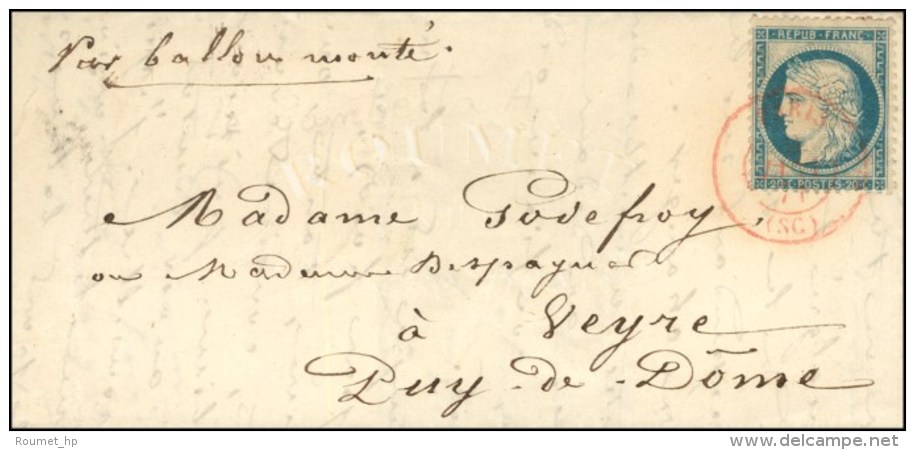 Par ballon monté.
REPUB·FRANC
20 C POSTES 20 C
(SC)
Madame Godefroy,
ou Madame Despagnes
à Veyre
Puy-de-Dôme
ROUMET
Roumet_hp
delcampe.net